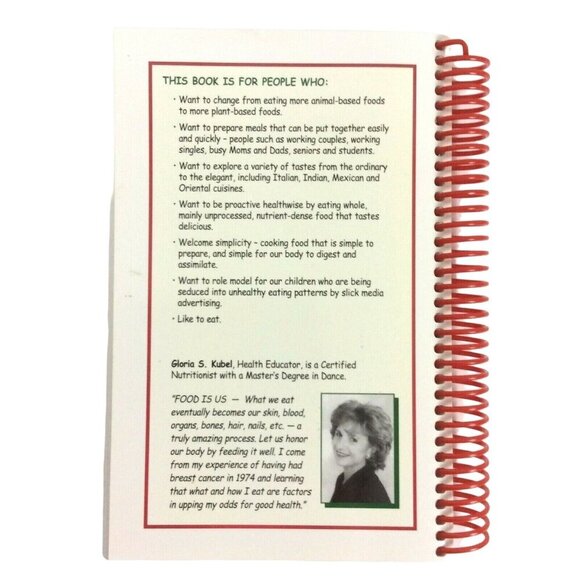 THIS BOOK IS FOR PEOPLE WHO:
• Want to change from eating more animal-based foods
to more plant-based foods.
• Want to prepare meals that can be put together easily
and quickly – people such as working couples, working
singles, busy Moms and Dads, seniors and students.
• Want to explore a variety of tastes from the ordinary
to the elegant, including Italian, Indian, Mexican and
Oriental cuisines.
• Want to be proactive healthwise by eating whole,
mainly unprocessed, nutrient-dense food that tastes
delicious.
• Welcome simplicity – cooking food that is simple to
prepare, and simple for our body to digest and
assimilate.
• Want to role model for our children who are being
seduced into unhealthy eating patterns by slick media
advertising.
• Like to eat.
Gloria S. Kubel, Health Educator, is a Certified
Nutritionist with a Master's Degree in Dance.
"FOOD IS US — What we eat
eventually becomes our skin, blood,
organs, bones, hair, nails, etc. — a
truly amazing process. Let us honor
our body by feeding it well. I come
from my experience of having had
breast cancer in 1974 and learning
that what and how I eat are factors
in upping my odds for good health."